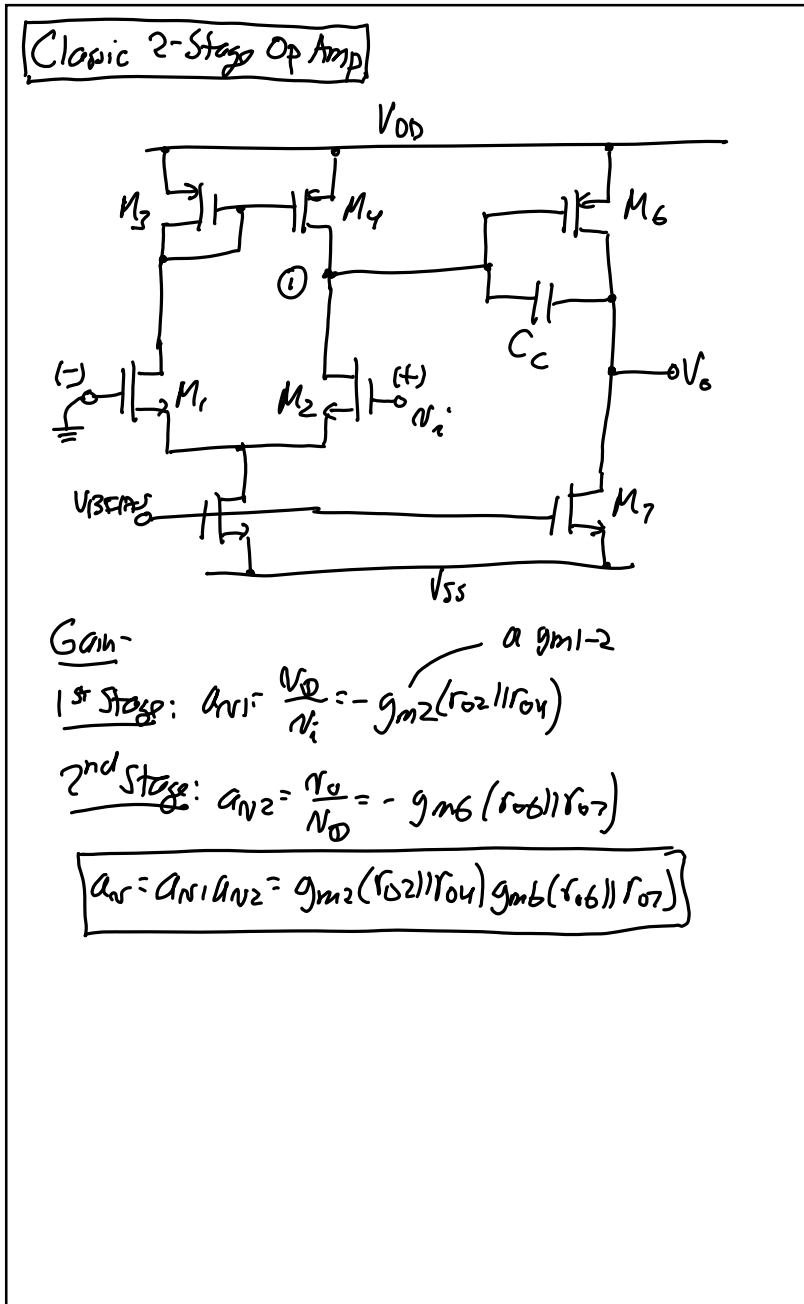 Classic 2-Stage Op Amp
VDD
M3
M4
M6
①
CC
(-)
M1
M2
(+)
vi
Vo
VBIAS
M7
VSS
Gain-
a gm1-2
1st Stage: av1 = v①/vi = -gm2(ro2||ro4)
2nd Stage: av2 = vo/v① = -gm6(ro6||ro7)
av = av1av2 = gm2(ro2||ro4)gm6(ro6||ro7)